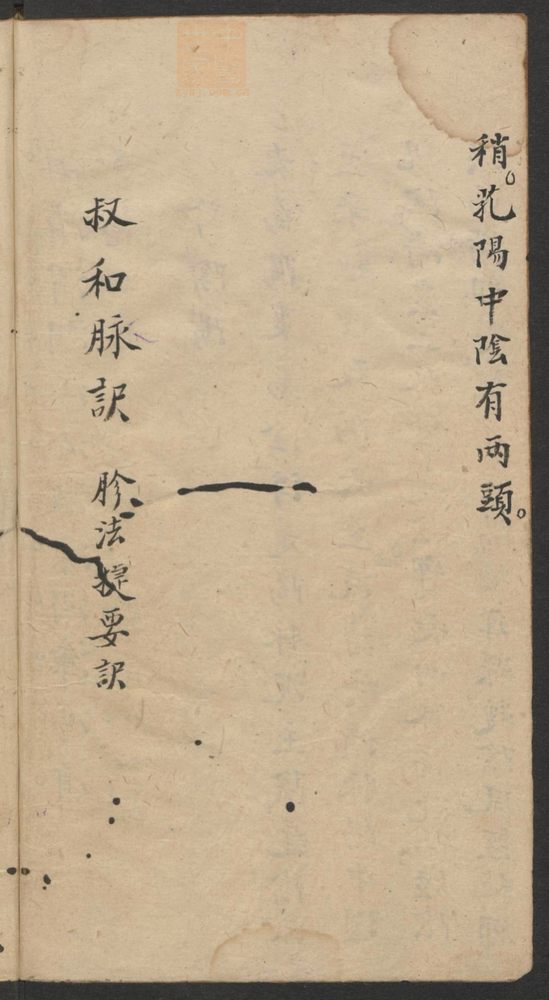 稍。乳陽中陰有兩頭。
叔和脉訣 胗法提要訣